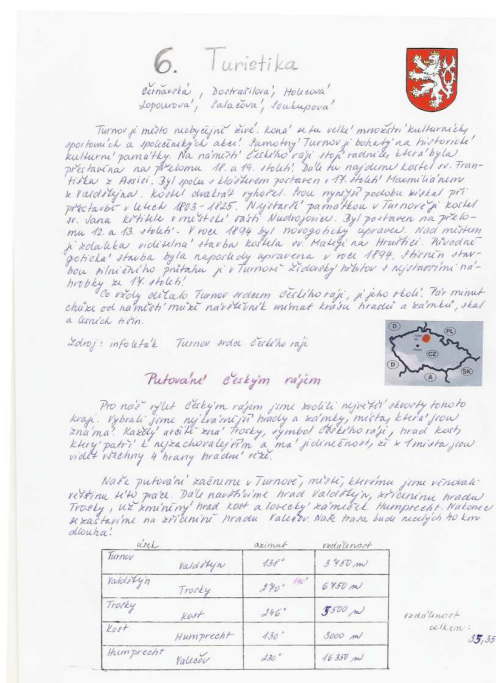 6. Turistika
Čerňavská, Dostrašilová, Holecová
Lopourová, Salačová, Soukupová
Turnov je město neobyčejně živé. Koná se tu velké množství kulturních,
sportovních a společenských akcí. Památný Turnov je bohatý na historické
kulturní památky. Na náměstí Českého ráje stojí radnice, která byla
přestavěna na přelomu 18. a 19. století. Dále tu najdeme kostel sv. Fran-
tiška z Assisi. Byl spolu s klášterem postaven v 17. století Maxmiliánem
z Valdštejna. Kostel dvakrát vyhořel. Svou nynější podobu získal při
přestavbě v letech 1803 - 1825. Nejstarší památkou v Turnově je kostel
sv. Jana Křtitele v městské části Nudvojovice. Byl postaven na přelo-
mu 12. a 13. století. V roce 1894 byl novogoticky upraven. Nad městem
je zdaleka viditelná stavba kostela sv. Matěje na Hruštici. Původně
gotická stavba byla naposledy upravena v roce 1894. Stíněn stav-
bou silničního průtahu je v Turnově Židovský hřbitov s nejstaršími ná-
hrobky ze 17. století.
Co vždy dělalo Turnov srdcem Českého ráje, je jeho okolí. Pár minut
chůze od náměstí může návštěvník vnímat krásu hradů a zámků, skal
a lesních
Zdroj: infoleták Turnov srdce Českého ráje
D PL
CZ
D A SK
Putování Českým rájem
Pro náš výlet Českým rájem jsme zvolili největší skvosty tohoto
kraje. Vybrali jsme nejkrásnější hrady a zámky, místa, která jsou
známá. Každý určitě zná Trosky, symbol Českého ráje, hrad Kost,
který patří k nejzachovalejším a má jedinečnost, že z 1 místa jsou
vidět všechny 4 hrany hradní věže.
Naše putování začneme v Turnově, městě, kterému jsme věnovali
většinu této práce. Dále navštívíme hrad Valdštejn, zříceninu hradu
Trosky, už zmíněný hrad Kost a lovecký zámeček Humprecht. Nakonec
se zastavíme na zřícenině hradu Valečov. Naše trasa bude necelých 40 km
dlouhá.
úsek azimut vzdálenost
Turnov Valdštejn 131° 3 750 m
Valdštejn Trosky 6 750 m
Trosky Kost 246° 5 500 m
Kost Humprecht 130° 3000 m
Humprecht Valečov 16 350 m
vzdálenost
celkem:
35,35